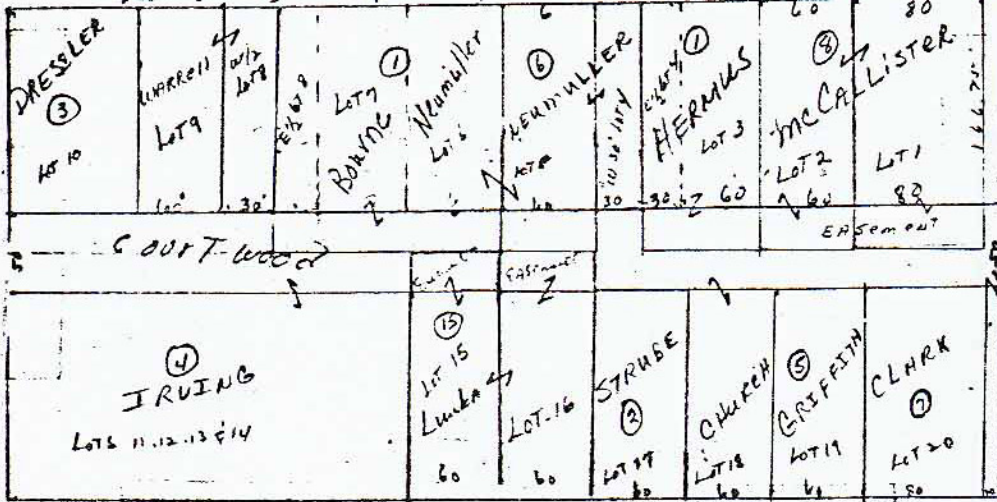 DRESSLER
3
LOT 10
WHARRELL
LOT 9
60'
W/2
LOT 8
30'
E 1/2 LOT 8
1
LOT 7
BOURNE
Neumiller
LOT 6
6
6
NEUMULLER
LOT 5
60
W 30' LOT 4
30
E 1/2 LOT 4
30
1
HERMAUS
LOT 3
60
60
8
MCCALLISTER
LOT 2
60
80
LOT 1
80
COURT-WOOD
EASEMENT
EASEMENT
EASEMENT
4
IRVING
LOTS 11.12.13 & 14
15
LOT 15
60
LOT-16
60
STRUBE
2
LOT 17
60
CHURCH
LOT 18
60
5
GRIFFITH
LOT 19
60
CLARK
7
LOT 20
80